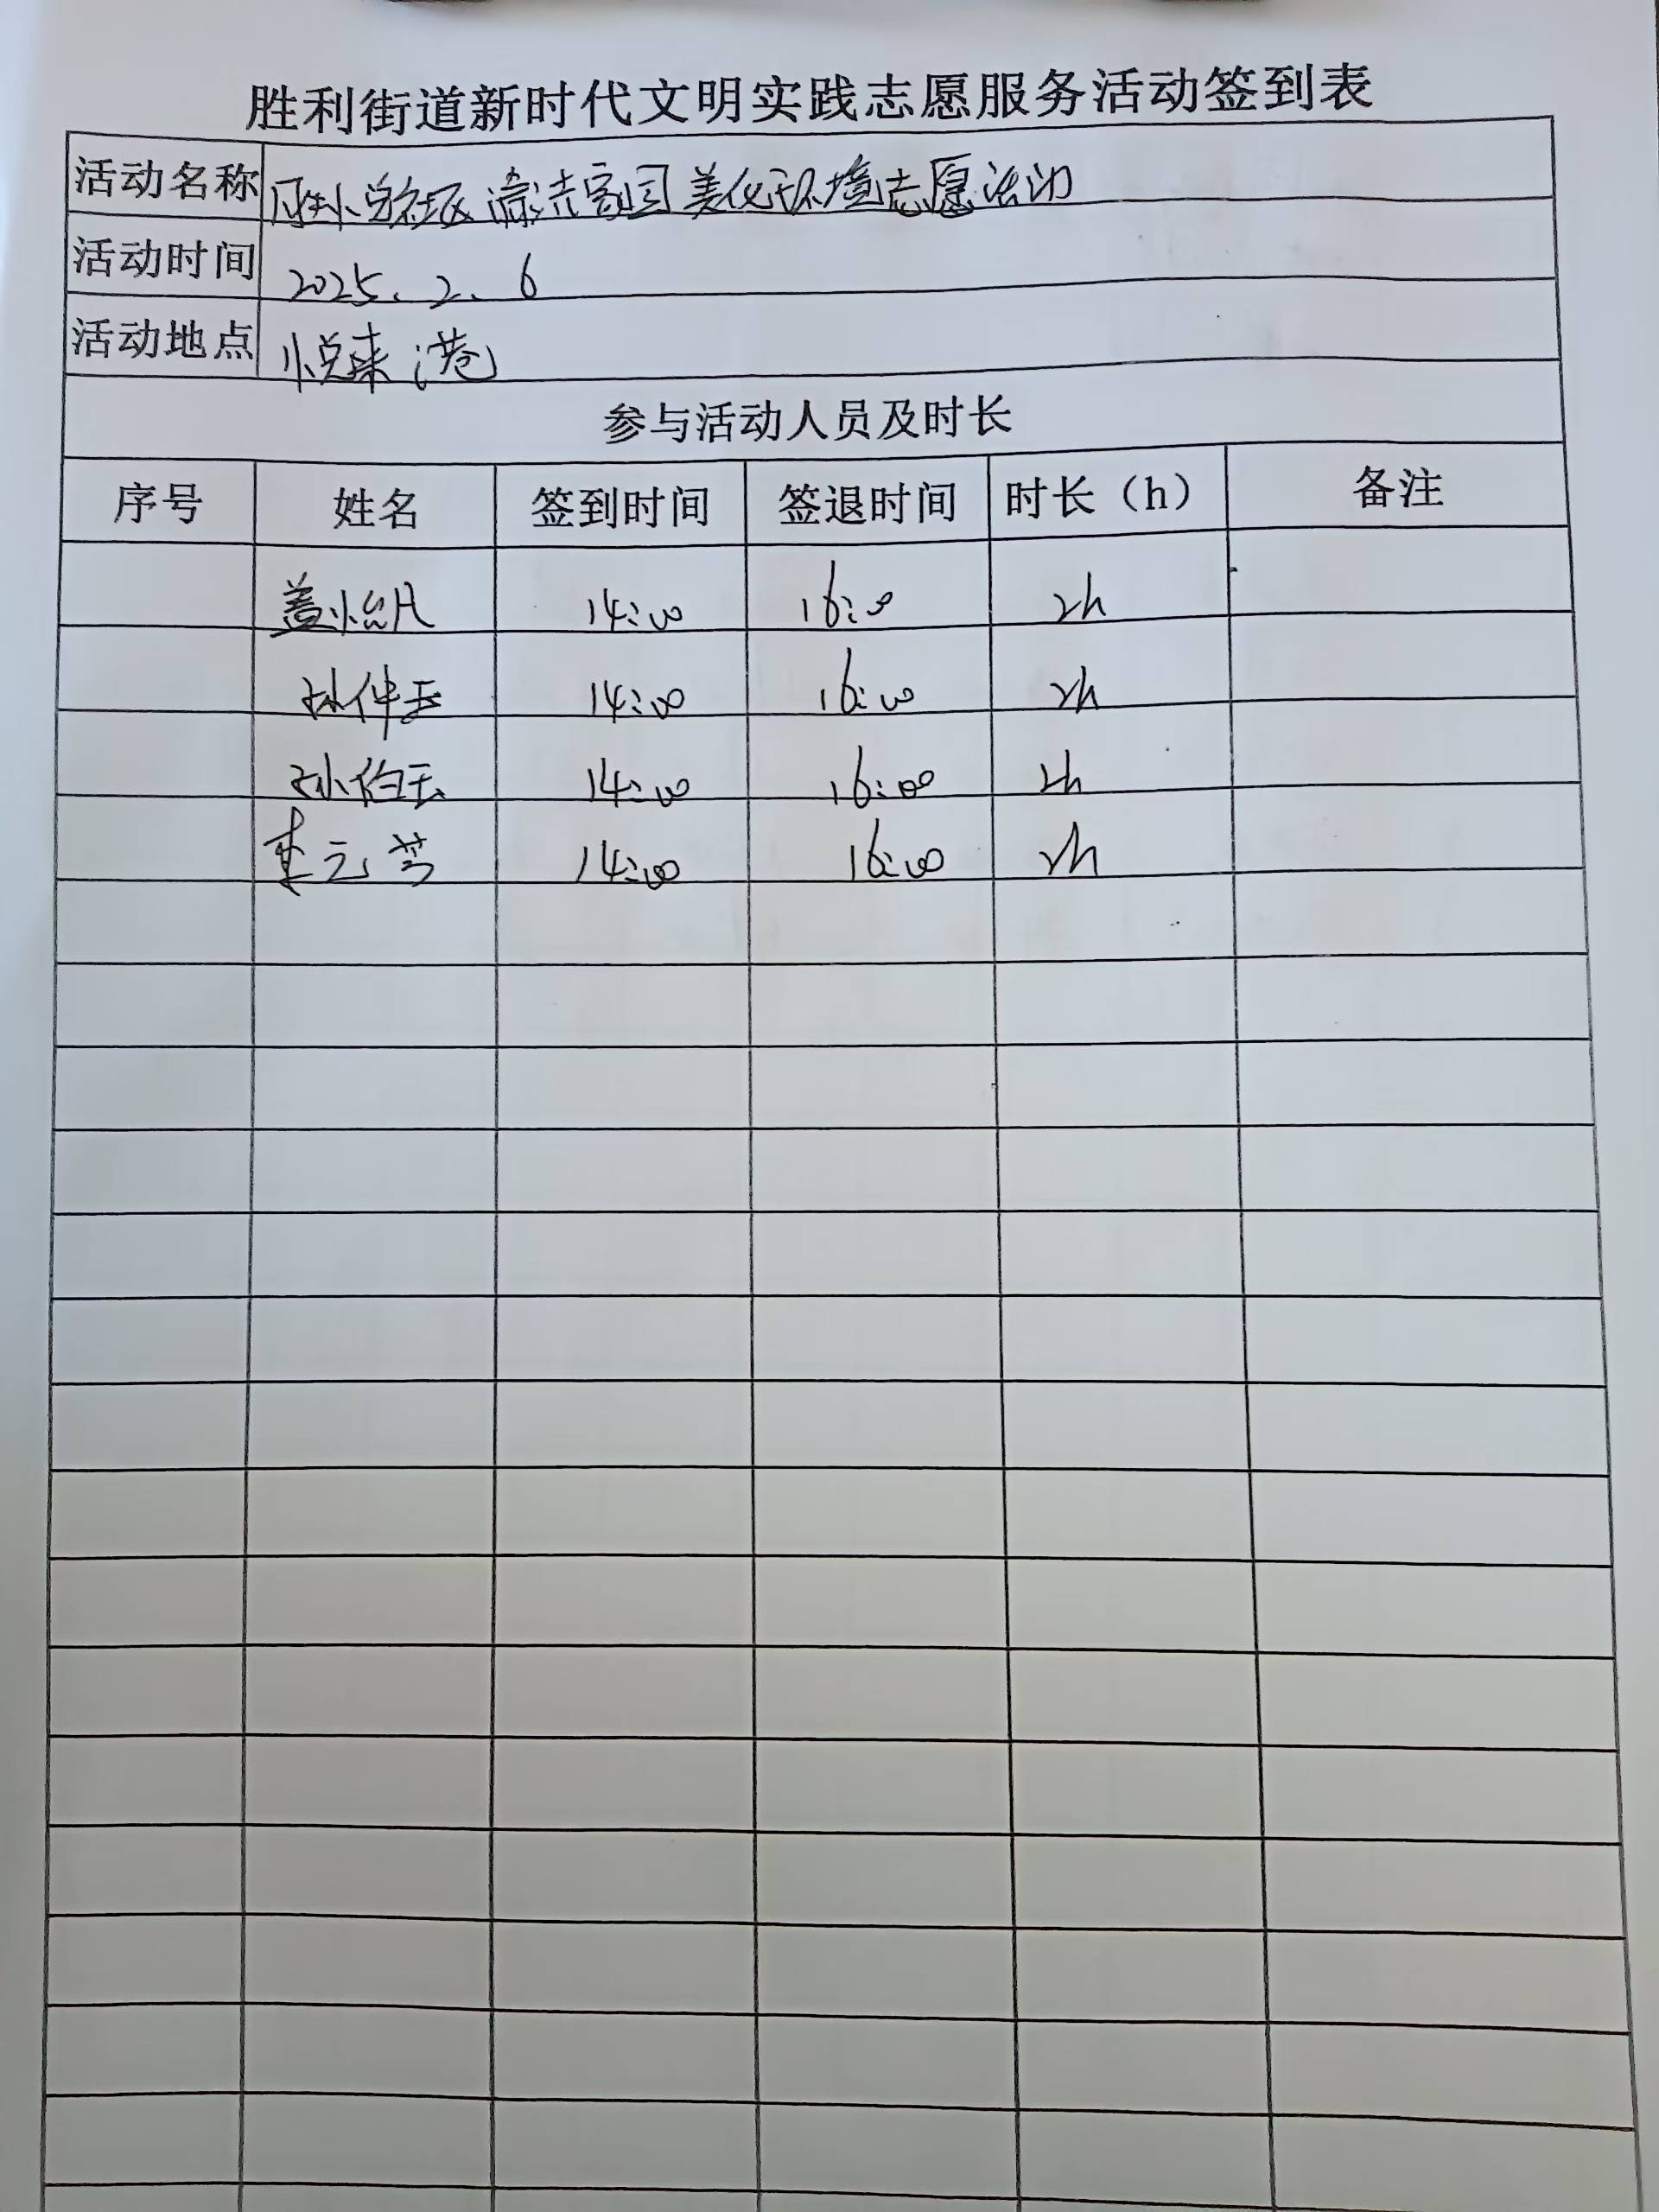 胜利街道新时代文明实践志愿服务活动签到表
活动名称 胜悦社区清洁家园美化环境志愿活动
活动时间 2025.2.6
活动地点 悦来港
参与活动人员及时长
序号 姓名 签到时间 签退时间 时长（h） 备注
盖 14:00 16:00 2h
孙仲玉 14:00 16:00 2h
孙伯玉 14:00 16:00 2h
元芳 14:00 16:00 2h